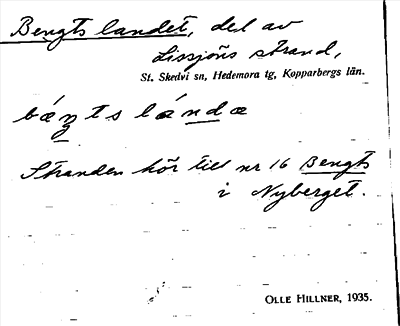 Bengts landet, del av
Lissjöns strand,
St. Skedvi sn, Hedemora tg, Kopparbergs län.
Stranden hör till nr 16 Bengts
i Nyberget.
OLLE HILLNER, 1935.